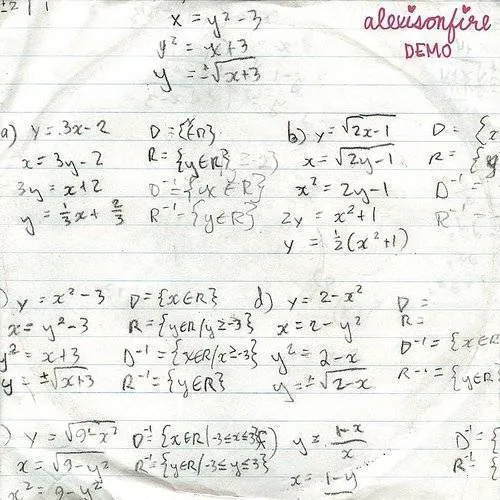 x = y² - 3
y² = x + 3
y = ±√x+3
alexisonfire
DEMO
a) y = 3x - 2
x = 3y - 2
3y = x + 2
y = 1/3 x + 2/3
D = {x∈R}
R = {y∈R}
D⁻¹ = {x∈R}
R⁻¹ = {y∈R}
b) y = √2x-1
x = √2y-1
x² = 2y-1
2y = x²+1
y = 1/2(x²+1)
D = {x
R = {y
D⁻¹
R⁻¹
) y = x² - 3
x = y² - 3
y² = x + 3
y = ±√x+3
D = {x∈R}
R = {y∈R/y≥-3}
D⁻¹ = {x∈R/x≥-3}
R⁻¹ = {y∈R}
d) y = 2 - x²
x = 2 - y²
y² = 2 - x
y = ±√2-x
D =
R =
D⁻¹ = {x∈R
R⁻¹ = {y∈R
) y = √9-x²
x = √9-y²
x² = 9-y²
D⁻¹ = {x∈R/-3≤x≤3}
R⁻¹ = {y∈R/-3≤y≤3}
y = 1-x/x
x = 1-y
D⁻¹ = {
R⁻¹ = {